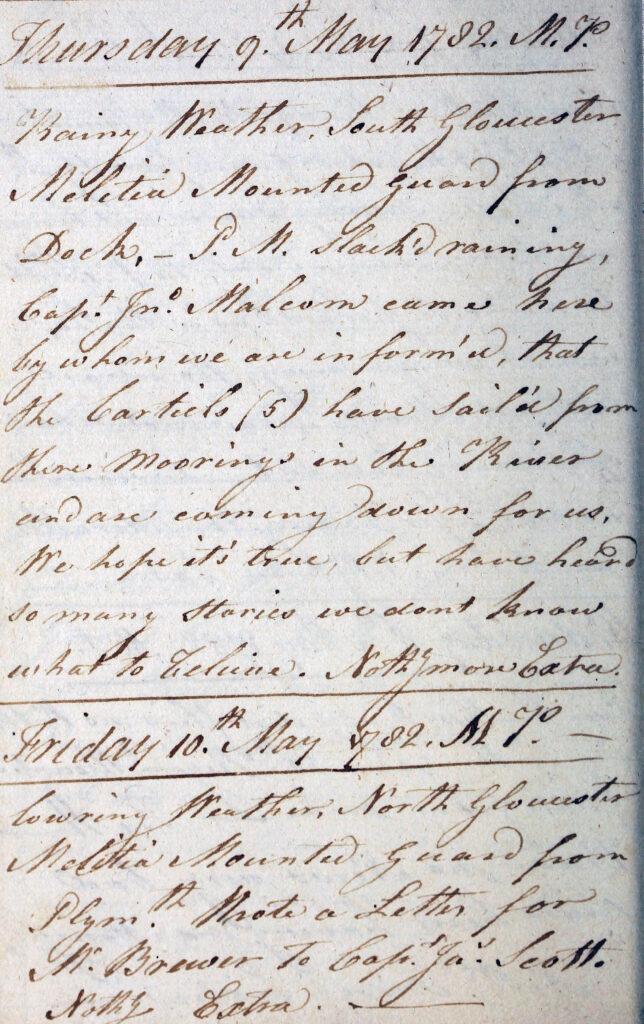 Thursday 9.th May 1782. M. P.
Rainy Weather, South Gloucester
Melitia Mounted guard from
Dock, – P. M. slack'd raining,
Cap.t Jn.o Malcom came here
by whom we are inform'd, that
the Cartiels (5) have sail'd from
there moorings in the River
and are coming down for us,
We hope it's true, but have heard
so many stories we dont know
what to beleive. Noth.g more Extra.
Friday 10.th May 1782. M P. –
lowring Weather, North Gloucester
Melitia Mounted Guard from
Plym.th Wrote a Letter for
Mr. Brewer To Cap.t Ja.s Scott.
Noth.g Extra. —